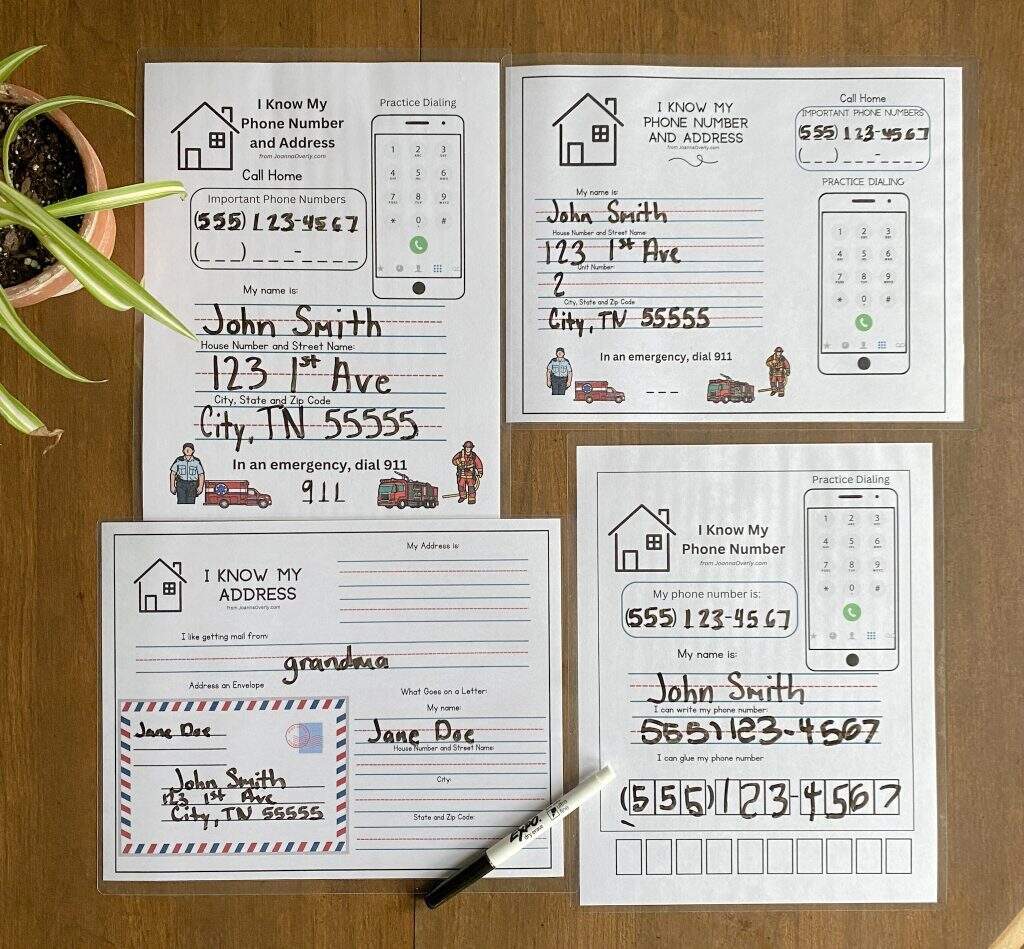 I Know My
Phone Number
and Address
from JoannaOverly.com
Call Home
Important Phone Numbers
(555) 123-4567
(_ _ _) _ _ _-_ _ _ _
Practice Dialing
1 2 3
ABC DEF
4 5 6
GHI JKL MNO
7 8 9
PQRS TUV WXYZ
* 0 #
My name is:
John Smith
House Number and Street Name:
123 1st Ave
City, State and Zip Code
City, TN 55555
In an emergency, dial 911
911
I KNOW MY
PHONE NUMBER
AND ADDRESS
from JoannaOverly.com
Call Home
IMPORTANT PHONE NUMBERS
(555) 123-4567
(_ _ _) _ _ _-_ _ _ _
PRACTICE DIALING
1 2 3
4 5 6
7 8 9
* 0 #
My name is:
John Smith
House Number and Street Name:
123 1st Ave
Unit Number:
2
City, State and Zip Code
City, TN 55555
In an emergency, dial 911
_ _ _
I KNOW MY
ADDRESS
from JoannaOverly.com
My Address is:
I like getting mail from:
grandma
Address an Envelope
Jane Doe
John Smith
123 1st Ave
City, TN 55555
What Goes on a Letter:
My name:
Jane Doe
House Number and Street Name:
City:
State and Zip Code:
EXPO.
dry erase
I Know My
Phone Number
from JoannaOverly.com
Practice Dialing
1 2 3
4 5 6
7 8 9
* 0 #
My phone number is:
(555) 123-4567
My name is:
John Smith
I can write my phone number:
555)123-4567
I can glue my phone number
(555)123-4567